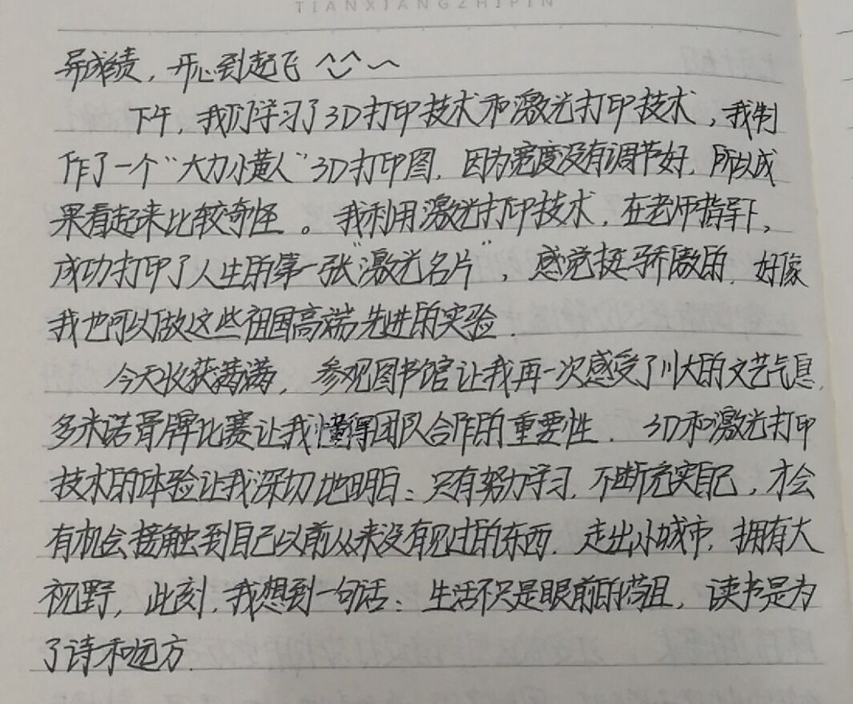 TIANXIANGZHIPIN
异成绩，开心到起飞
下午，我们学习了3D打印技术和激光打印技术，我制
作了一个“大力小黄人”3D打印图，因为宽度没有调节好，所以成
果看起来比较奇怪。我利用激光打印技术，在老师指导下，
成功打印了人生的第一张“激光名片”，感觉挺骄傲的，好像
我也可以做这些祖国高端先进的实验．
今天收获满满，参观图书馆让我再一次感受了川大的文艺气息，
多米诺骨牌比赛让我懂得团队合作的重要性．3D和激光打印
技术的体验让我深切地明白：只有努力学习，不断充实自己，才会
有机会接触到自己以前从来没有见过的东西．走出小城市，拥有大
视野，此刻，我想到一句话：生活不只是眼前的苟且，读书是为
了诗和远方．